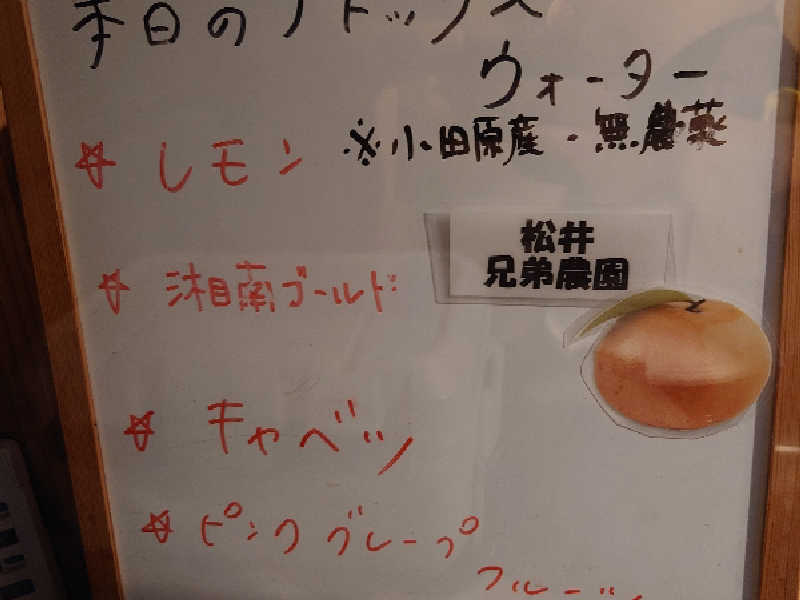 本日のデトックス
ウォーター
☆ レモン ※小田原産・無農薬
松井
兄弟農園
☆ 湘南ゴールド
☆ キャベツ
☆ ピンクグレープ
フルーツ